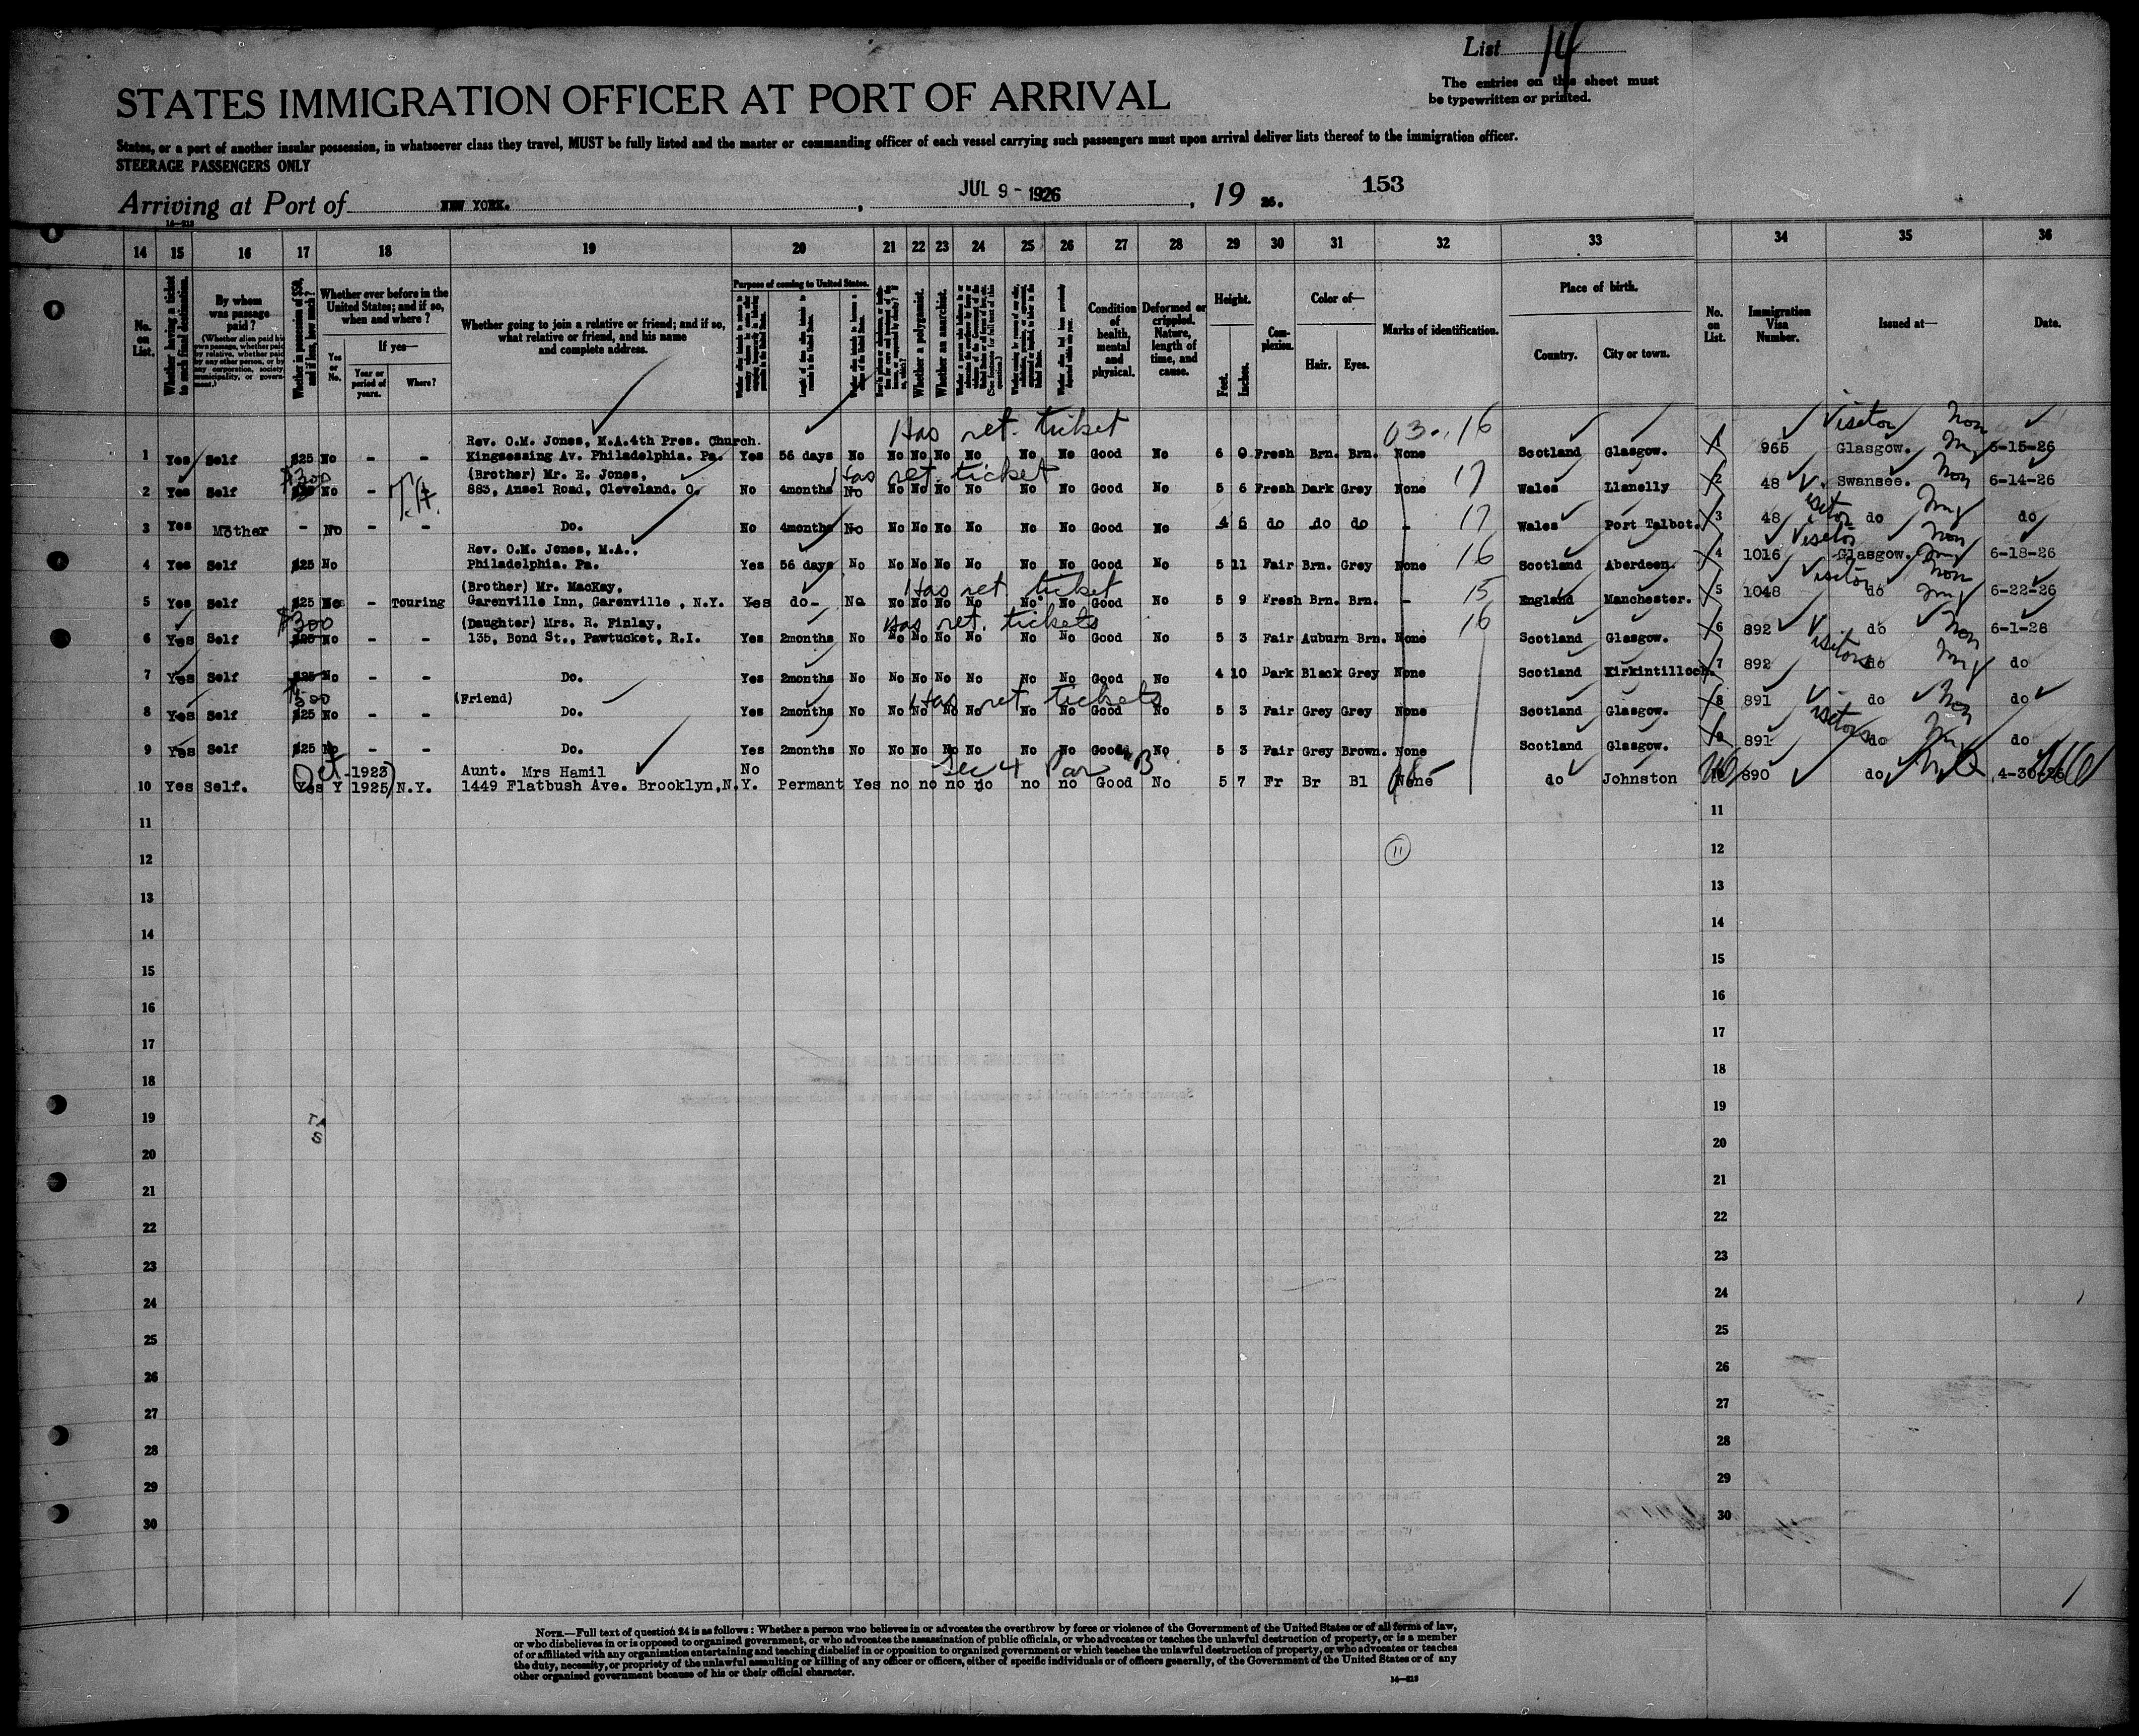 List 14
The entries on this sheet must
be typewritten or printed.
STATES IMMIGRATION OFFICER AT PORT OF ARRIVAL
States, or a port of another insular possession, in whatsoever class they travel, MUST be fully listed and the master or commanding officer of each vessel carrying such passengers must upon arrival deliver lists thereof to the immigration officer.
STEERAGE PASSENGERS ONLY
Arriving at Port of NEW YORK. , JUL 9 - 1926 , 19 26. 153
14 15 16 17 18 19 20 21 22 23 24 25 26 27 28 29 30 31 32 33 34 35 36
No. on List.
Whether having a ticket to such final destination.
By whom was passage paid?
(Whether alien paid his own passage, whether paid by relative, whether paid by any other person, or by any corporation, society, municipality, or government.)
Whether in possession of $50, and if less, how much?
Whether ever before in the United States; and if so, when and where?
Yes or No.
If yes—
Year or period of years.
Where?
Whether going to join a relative or friend; and if so, what relative or friend, and his name and complete address.
Purpose of coming to United States.
Whether a polygamist.
Whether an anarchist.
Condition of health, mental and physical.
Deformed or crippled. Nature, length of time, and cause.
Height.
Feet. Inches.
Complexion.
Color of—
Hair. Eyes.
Marks of identification.
Place of birth.
Country. City or town.
No. on List.
Immigration Visa Number.
Issued at—
Date.
Has ret. ticket 03 16 Visitor Non
Rev. O.M. Jones, M.A. 4th Pres. Church.
1 Yes Self $25 No - - Kingsessing Av. Philadelphia. Pa. Yes 56 days No No No No No No No Good No 6 0 Fresh Brn. Brn. None Scotland Glasgow. 1 965 Glasgow. 6-15-26
$300 (Brother) Mr. E. Jones, Has ret. ticket 17 Non
2 Yes Self No - 883, Ansel Road, Cleveland. O. No 4months No No No No No No No Good No 5 6 Fresh Dark Grey None Wales Llanelly 2 48 Swansea. 6-14-26
3 Yes Mother - No - - Do. No 4months No No No No No No No Good No 4 6 do do do - 17 Wales Port Talbot. 3 48 do do
Rev. O.M. Jones, M.A., 16 Visitor Non
4 Yes Self $25 No Philadelphia. Pa. Yes 56 days No No No No No No No Good No 5 11 Fair Brn. Grey None Scotland Aberdeen. 4 1016 Glasgow. 6-18-26
(Brother) Mr. MacKay, Has ret ticket 15 Visitor Non
5 Yes Self $25 - Touring Garenville Inn, Garenville , N.Y. Yes do- No No No No No No No Good No 5 9 Fresh Brn. Brn. - England Manchester. 5 1048 do 6-22-26
$300 (Daughter) Mrs. R. Finlay, Has ret. tickets 16 Non
6 Yes Self $25 No - - 135, Bond St., Pawtucket, R.I. Yes 2months No No No No No No No Good No 5 3 Fair Auburn Brn. None Scotland Glasgow. 6 892 do 6-1-26
Visitors
7 Yes Self $25 No - - Do. Yes 2months No No No No No No No Good No 4 10 Dark Black Grey None Scotland Kirkintilloch. 7 892 do do
$500 (Friend) Has ret tickets Non
8 Yes Self $25 No - - Do. Yes 2months No No No No No No No Good No 5 3 Fair Grey Grey None Scotland Glasgow. 8 891 do do
Visitors
9 Yes Self $25 No - - Do. Yes 2months No No No No No No No Good No 5 3 Fair Grey Brown. None Scotland Glasgow. 9 891 do do
Oct -1923) Aunt. Mrs Hamil No Sec 4 Par B
10 Yes Self. Yes Y 1925 N.Y. 1449 Flatbush Ave. Brooklyn, N.Y. Permant Yes no no no no no no Good No 5 7 Fr Br Bl None do Johnston 10 890 do 4-30-26
11 11
12 11 12
13 13
14 14
15 15
16 16
17 17
18 18
19 19
20 20
21 21
22 22
23 23
24 24
25 25
26 26
27 27
28 28
29 29
30 30
NOTE.—Full text of question 24 is as follows: Whether a person who believes in or advocates the overthrow by force or violence of the Government of the United States or of all forms of law,
or who disbelieves in or is opposed to organized government, or who advocates the assassination of public officials, or who advocates or teaches the unlawful destruction of property, or is a member
of or affiliated with any organization entertaining and teaching disbelief in or opposition to organized government or which teaches the unlawful destruction of property, or who advocates or teaches
the duty, necessity, or propriety of the unlawful assaulting or killing of any officer or officers, either of specific individuals or of officers generally, of the Government of the United States or of any
other organized government because of his or their official character.
14—213